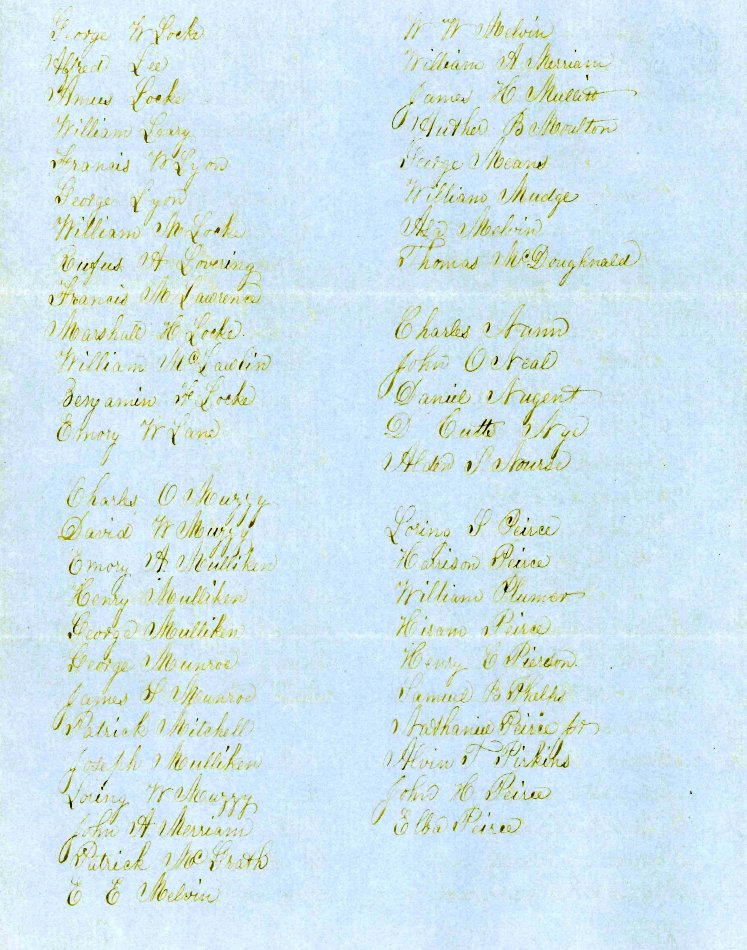 George W Locke
Alfred Lee
Amus Locke
William Leary
Francis W Lyon
George Lyon
William M Locke
Rufus A Lovering
Francis M Lawrence
Marshall H Locke
William McLawlin
Benjamin F Locke
Emory W Lane
Charles O Muzzy
David W Muzzy
Emory A Mulliken
Henry Mulliken
George Mulliken
George Munroe
James S Munroe
Patrick Mitchell
Joseph Mulliken
Loring W Muzzy
John A Merriam
Patrick McGrath
E E Melvin
W W Melvin
William A Merriam
James H
Huther B Moulton
George Means
William Mudge
Asa Melvin
Thomas McDoughnald
Charles Nunn
John O Neal
Daniel Nugent
D Cutts Nye
Alden S Nourse
Loring S Peirce
Harrison Peirce
William Plumer
Hiram Peirce
Henry E Pierson
Samuel B Phelps
Nathaniel Peirce Jr
Alvin T Pirkins
John H Peirce
Elba Peirce